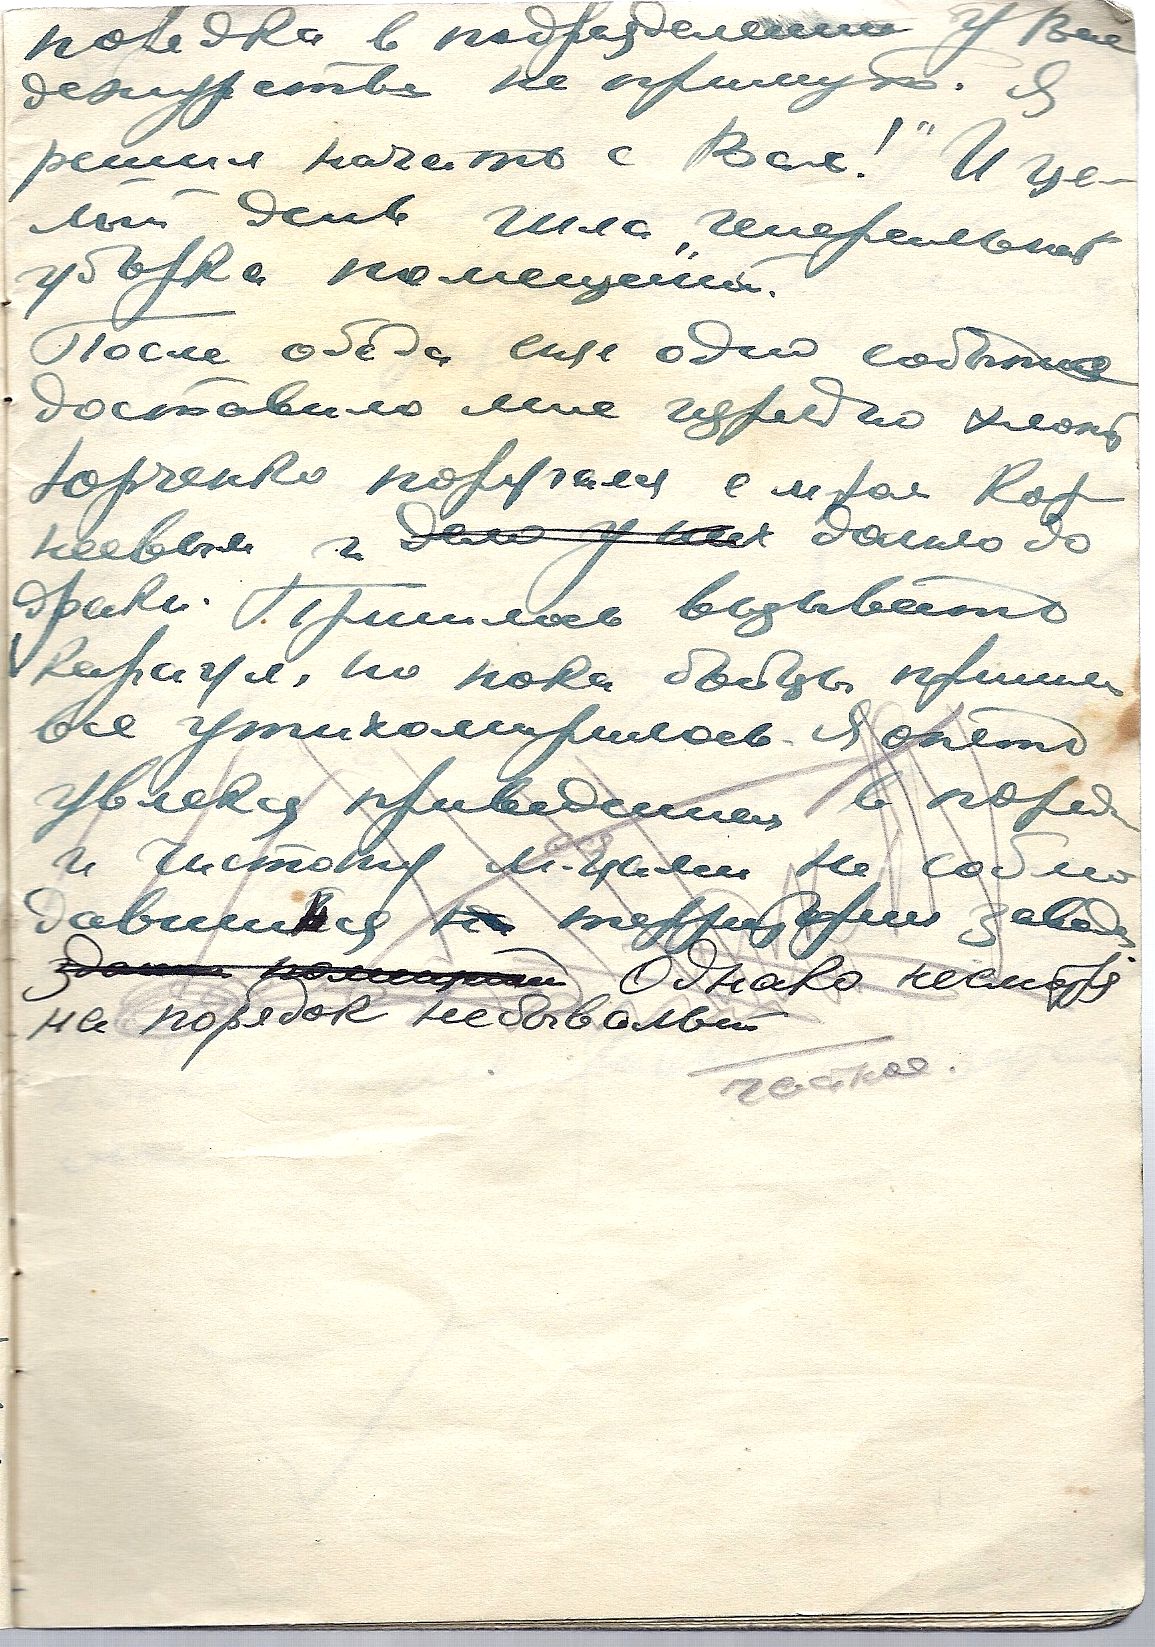 порядка в подразделении у Вас
дежурства не примут. Я
решил начать с Вас!" И це-
лый день шла „генеральная
уборка помещений.
После обеда еще одно событие
доставило мне изрядно хлопот
Юрченко поругался с Кор
неевым и дело у них дошло до
драки. Пришлось вызывать
караул, но пока бойцы пришли
все утихомирилось. Я опять
увлекся приведением в порядок
и чистоту не соблю
давшийся территории
здания помещений Однако несмотря
на порядок небывалый